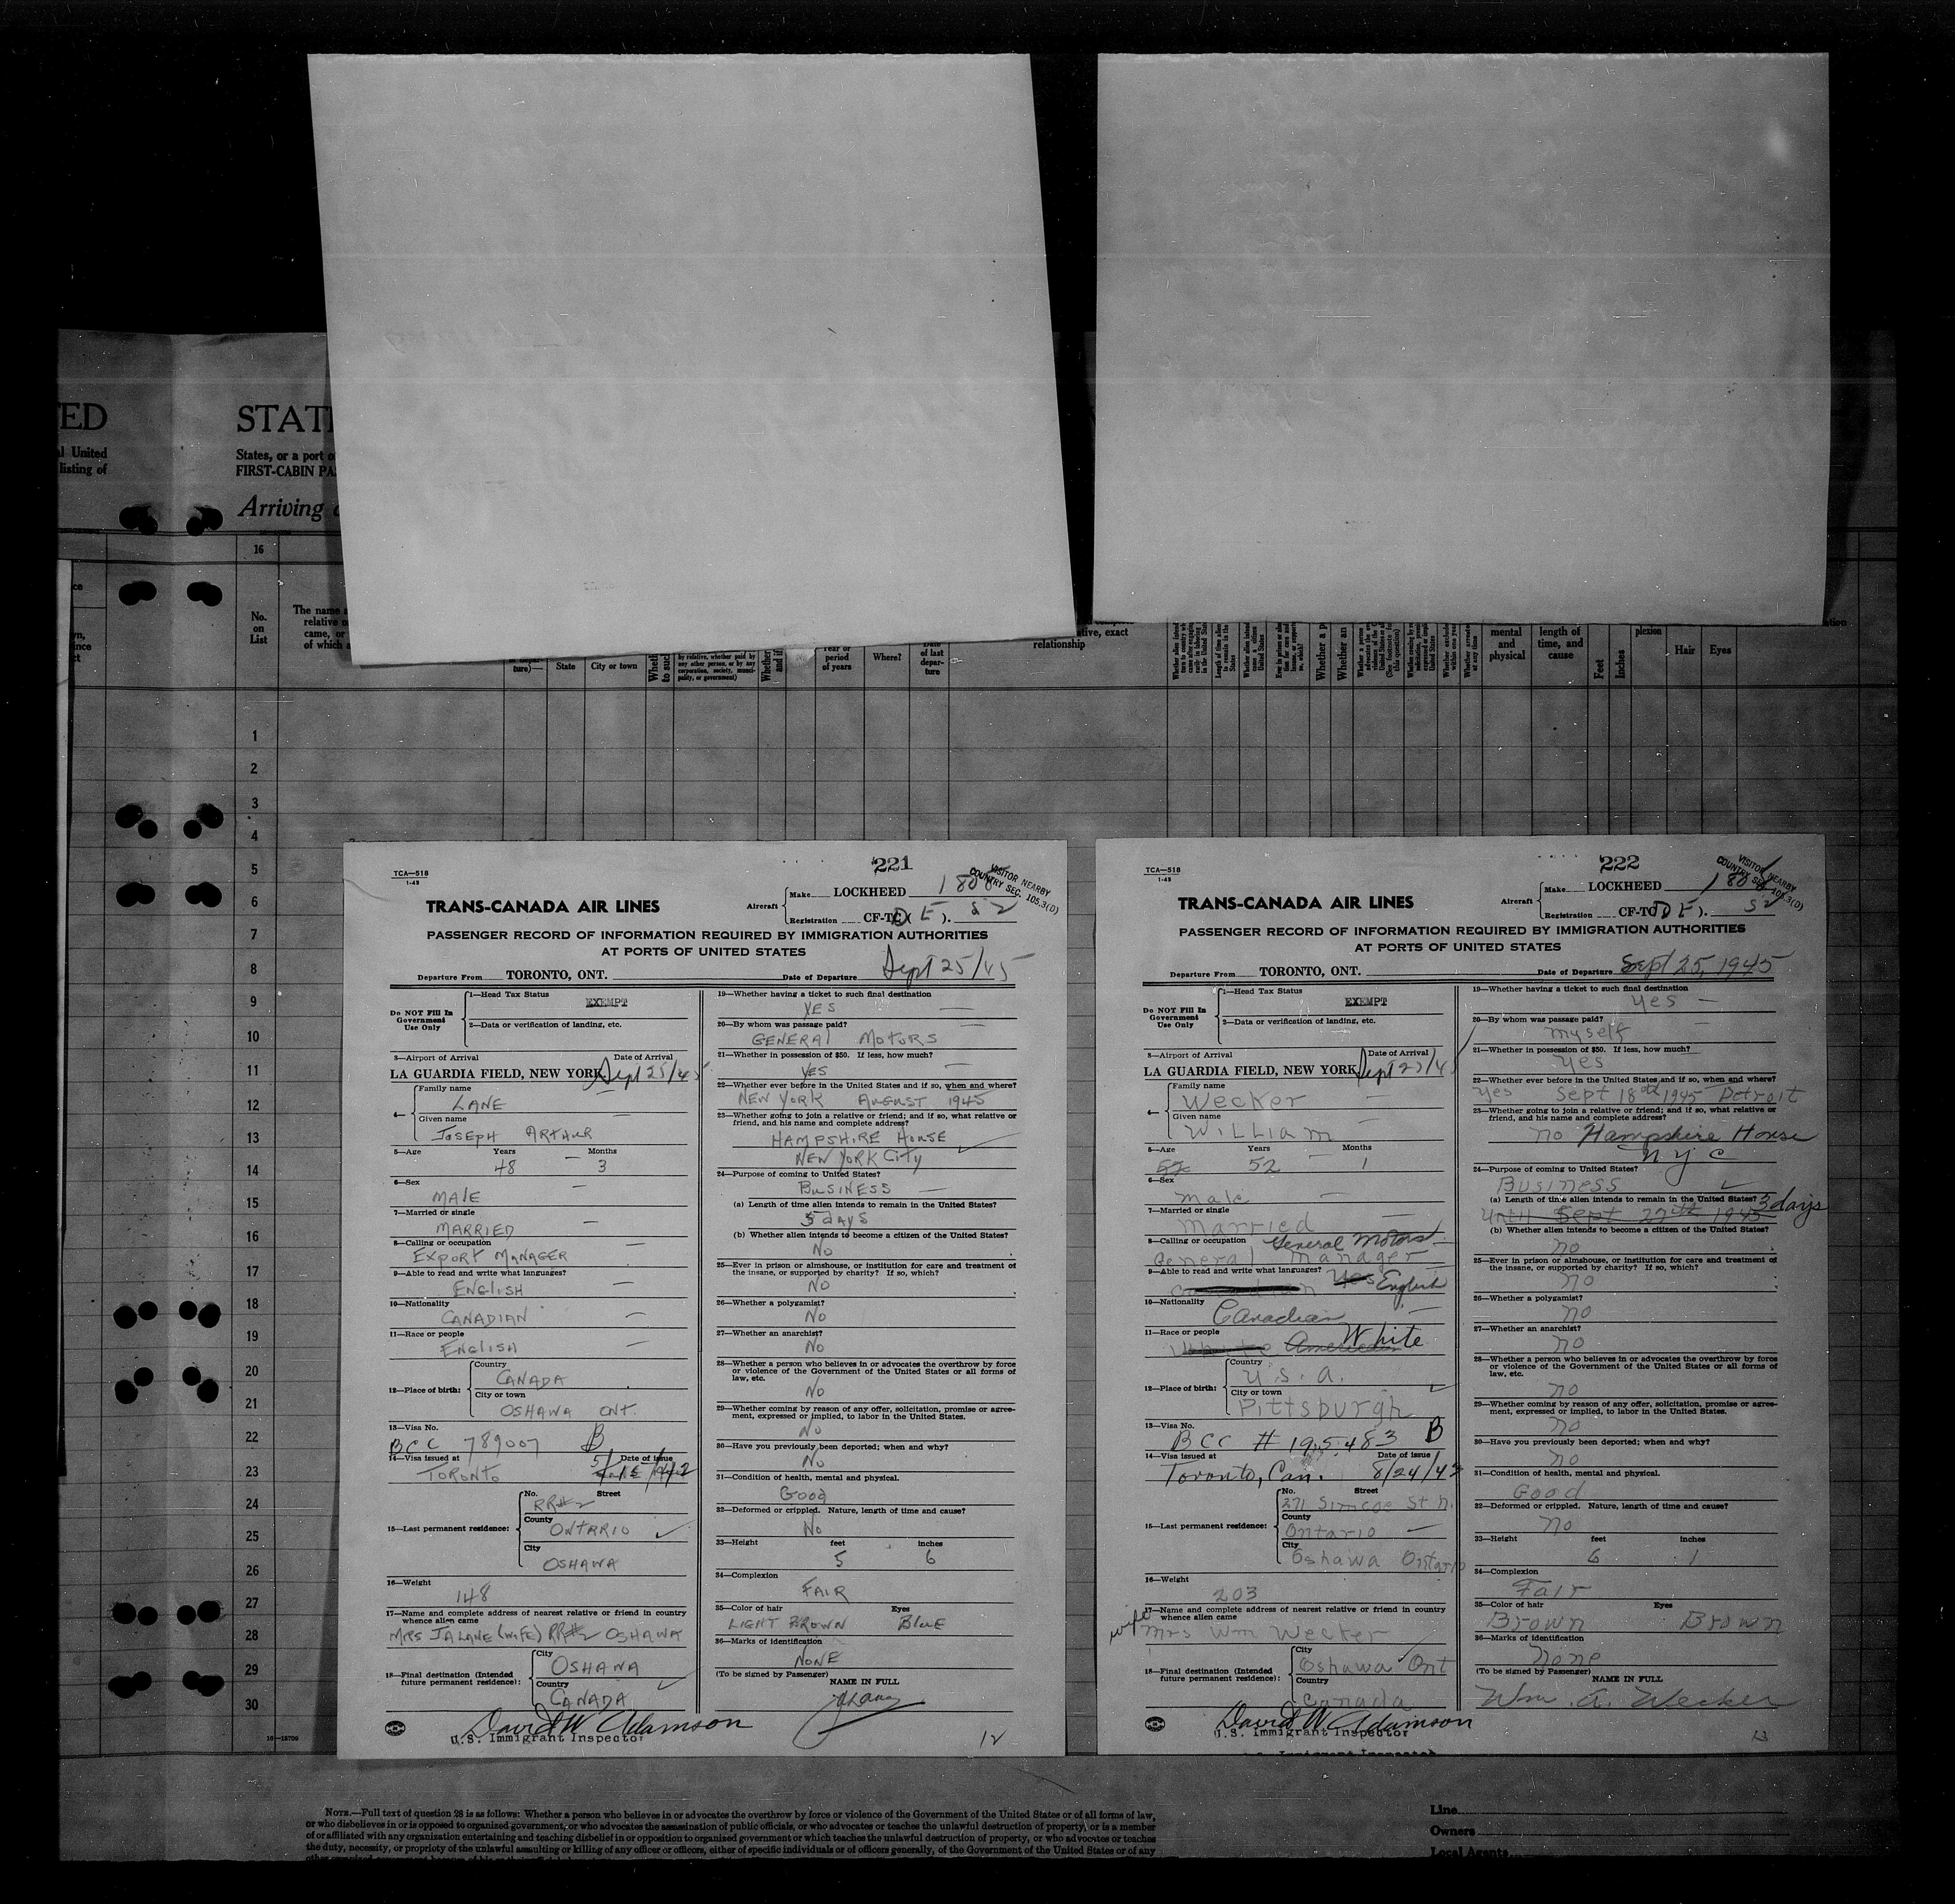 ED
STAT
al United
listing of
States, or a port o
FIRST-CABIN PA
Arriving
16
No.
on
List
The name a
relative o
came, or
of which a
ture)—
State
City or town
by relative, whether paid by
any other person, or by any
corporation, society, munici-
pality, or government)
Year or
period
of years
Where?
Date
of last
depar-
ture
relationship
mental
and
physical
length of
time, and
cause
Feet
Inches
plexion
Hair
Eyes
1
2
3
4
5
6
7
8
9
10
11
12
13
14
15
16
17
18
19
20
21
22
23
24
25
26
27
28
29
30
16—18709
TCA—518
1-43
221
VISITOR NEARBY
COUNTRY SEC. 105.3(D)
TRANS-CANADA AIR LINES
Aircraft
Make LOCKHEED 1808
Registration CF-TC(DE). 52
PASSENGER RECORD OF INFORMATION REQUIRED BY IMMIGRATION AUTHORITIES
AT PORTS OF UNITED STATES
Departure From TORONTO, ONT. Date of Departure Sept 25/45
Do NOT Fill In
Government
Use Only
1—Head Tax Status
EXEMPT
2—Data or verification of landing, etc.
3—Airport of Arrival Date of Arrival
LA GUARDIA FIELD, NEW YORK Sept 25/45
4— Family name
LANE
Given name
JOSEPH ARTHUR
5—Age Years Months
48 3
6—Sex
MALE
7—Married or single
MARRIED
8—Calling or occupation
EXPORT MANAGER
9—Able to read and write what languages?
ENGLISH
10—Nationality
CANADIAN
11—Race or people
ENGLISH
12—Place of birth:
Country
CANADA
City or town
OSHAWA ONT.
13—Visa No.
BCC 789007 B
14—Visa issued at Date of issue
TORONTO 5/15/42
15—Last permanent residence:
No. Street
RR#2
County
ONTARIO
City
OSHAWA
16—Weight
148
17—Name and complete address of nearest relative or friend in country
whence alien came
MRS JA LANE (WIFE) RR#2 OSHAWA
18—Final destination (Intended
future permanent residence):
City
OSHAWA
Country
CANADA
David W. Adamson
U.S. Immigrant Inspector
19—Whether having a ticket to such final destination
YES
20—By whom was passage paid?
GENERAL MOTORS
21—Whether in possession of $50. If less, how much?
YES
22—Whether ever before in the United States and if so, when and where?
NEW YORK AUGUST 1945
23—Whether going to join a relative or friend; and if so, what relative or
friend, and his name and complete address?
HAMPSHIRE HOUSE
NEW YORK CITY
24—Purpose of coming to United States?
BUSINESS
(a) Length of time alien intends to remain in the United States?
5 DAYS
(b) Whether alien intends to become a citizen of the United States?
NO
25—Ever in prison or almshouse, or institution for care and treatment of
the insane, or supported by charity? If so, which?
NO
26—Whether a polygamist?
NO
27—Whether an anarchist?
NO
28—Whether a person who believes in or advocates the overthrow by force
or violence of the Government of the United States or all forms of
law, etc.
NO
29—Whether coming by reason of any offer, solicitation, promise or agree-
ment, expressed or implied, to labor in the United States.
NO
30—Have you previously been deported; when and why?
NO
31—Condition of health, mental and physical.
GOOD
32—Deformed or crippled. Nature, length of time and cause?
NO
33—Height feet inches
5 6
34—Complexion
FAIR
35—Color of hair Eyes
LIGHT BROWN BLUE
36—Marks of identification
NONE
(To be signed by Passenger) NAME IN FULL
12
TCA—518
1-43
222
VISITOR NEARBY
COUNTRY SEC. 105.3(D)
TRANS-CANADA AIR LINES
Aircraft
Make LOCKHEED 1808
Registration CF-TC(DE). 52
PASSENGER RECORD OF INFORMATION REQUIRED BY IMMIGRATION AUTHORITIES
AT PORTS OF UNITED STATES
Departure From TORONTO, ONT. Date of Departure Sept 25, 1945
Do NOT Fill In
Government
Use Only
1—Head Tax Status
EXEMPT
2—Data or verification of landing, etc.
3—Airport of Arrival Date of Arrival
LA GUARDIA FIELD, NEW YORK Sept 25/45
Family name
Wecker
Given name
William
5—Age Years Months
52 52 1
6—Sex
male
7—Married or single
married
8—Calling or occupation General Motors
General manager
9—Able to read and write what languages? Yes English
10—Nationality
Canadian
11—Race or people White
White American
12—Place of birth:
Country
U.S.A.
City or town
Pittsburgh
13—Visa No.
BCC # 195483 B
14—Visa issued at Date of issue
Toronto, Can. 8/24/42
15—Last permanent residence:
No. Street
271 Simcoe St N.
County
Ontario
City
Oshawa Ontario
16—Weight
203
17—Name and complete address of nearest relative or friend in country
whence alien came
wife
Mrs Wm Wecker
18—Final destination (Intended
future permanent residence):
City
Oshawa Ont
Country
Canada
David W. Adamson
U.S. Immigrant Inspector
19—Whether having a ticket to such final destination
yes
20—By whom was passage paid?
myself
21—Whether in possession of $50. If less, how much?
yes
22—Whether ever before in the United States and if so, when and where?
yes Sept 18th 1945 Detroit
23—Whether going to join a relative or friend; and if so, what relative or
friend, and his name and complete address?
no Hampshire House
N Y C
24—Purpose of coming to United States?
Business
(a) Length of time alien intends to remain in the United States? 3 days
until Sept 27th 1945
(b) Whether alien intends to become a citizen of the United States?
no
25—Ever in prison or almshouse, or institution for care and treatment of
the insane, or supported by charity? If so, which?
no
26—Whether a polygamist?
no
27—Whether an anarchist?
no
28—Whether a person who believes in or advocates the overthrow by force
or violence of the Government of the United States or all forms of
law, etc.
no
29—Whether coming by reason of any offer, solicitation, promise or agree-
ment, expressed or implied, to labor in the United States.
no
30—Have you previously been deported; when and why?
no
31—Condition of health, mental and physical.
Good
32—Deformed or crippled. Nature, length of time and cause?
no
33—Height feet inches
6 1
34—Complexion
Fair
35—Color of hair Eyes
Brown Brown
36—Marks of identification
none
(To be signed by Passenger) NAME IN FULL
Wm. A. Wecker
13
NOTE.—Full text of question 28 is as follows: Whether a person who believes in or advocates the overthrow by force or violence of the Government of the United States or of all forms of law,
or who disbelieves in or is opposed to organized government, or who advocates the assassination of public officials, or who advocates or teaches the unlawful destruction of property, or is a member
of or affiliated with any organization entertaining and teaching disbelief in or opposition to organized government or which teaches the unlawful destruction of property, or who advocates or teaches
the duty, necessity, or propriety of the unlawful assaulting or killing of any officer or officers, either of specific individuals or of officers generally, of the Government of the United States or of any
Line
Owners
Local Agents